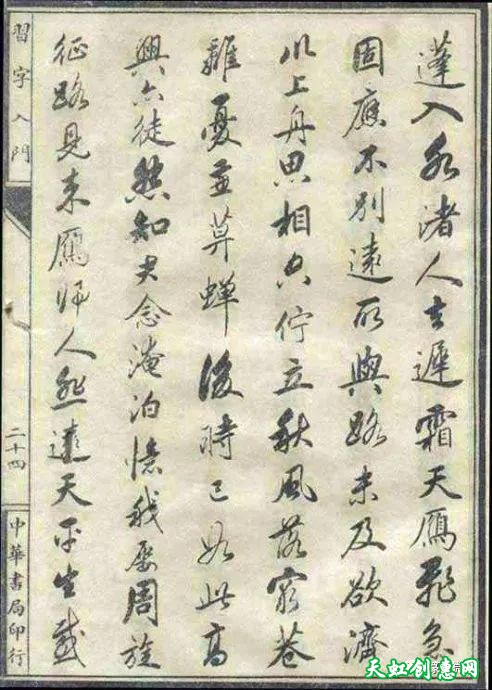 蓬入永渚人去遲霜天雁飛急
固應不別遠所與路未及欲濟
川上舟思相空佇立秋風落窮巷
離憂並暮蟬後時已如此高
興亦徒然知夫念淹泊憶我屢周旋
征路見來雁歸人悲遠天平生感
習字入門
二十四
中華書局印行
天虹创意网